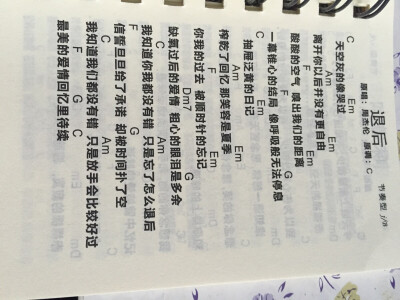 退后
原唱：周杰伦 原调：C
节奏型
C Em
天空灰的像哭过
Am Em
离开你以后并没有更自由
F
酸酸的空气 嗅出我们的距离
F G
一幕锥心的结局 像呼吸般无法停息
C Em
抽屉泛黄的日记
Am Em
榨乾了回忆 那笑容是夏季
F
你我的过去 被顺时针的忘记
Dm7 G
缺氧过后的爱情 粗心的眼泪是多余
C Am
我知道你我都没有错 只是忘了怎么退后
F G
信誓旦旦给了承诺 却被时间扑了空
C Am
我知道我们都没有错 只是放手会比较好过
F G C
最美的爱情回忆里待续